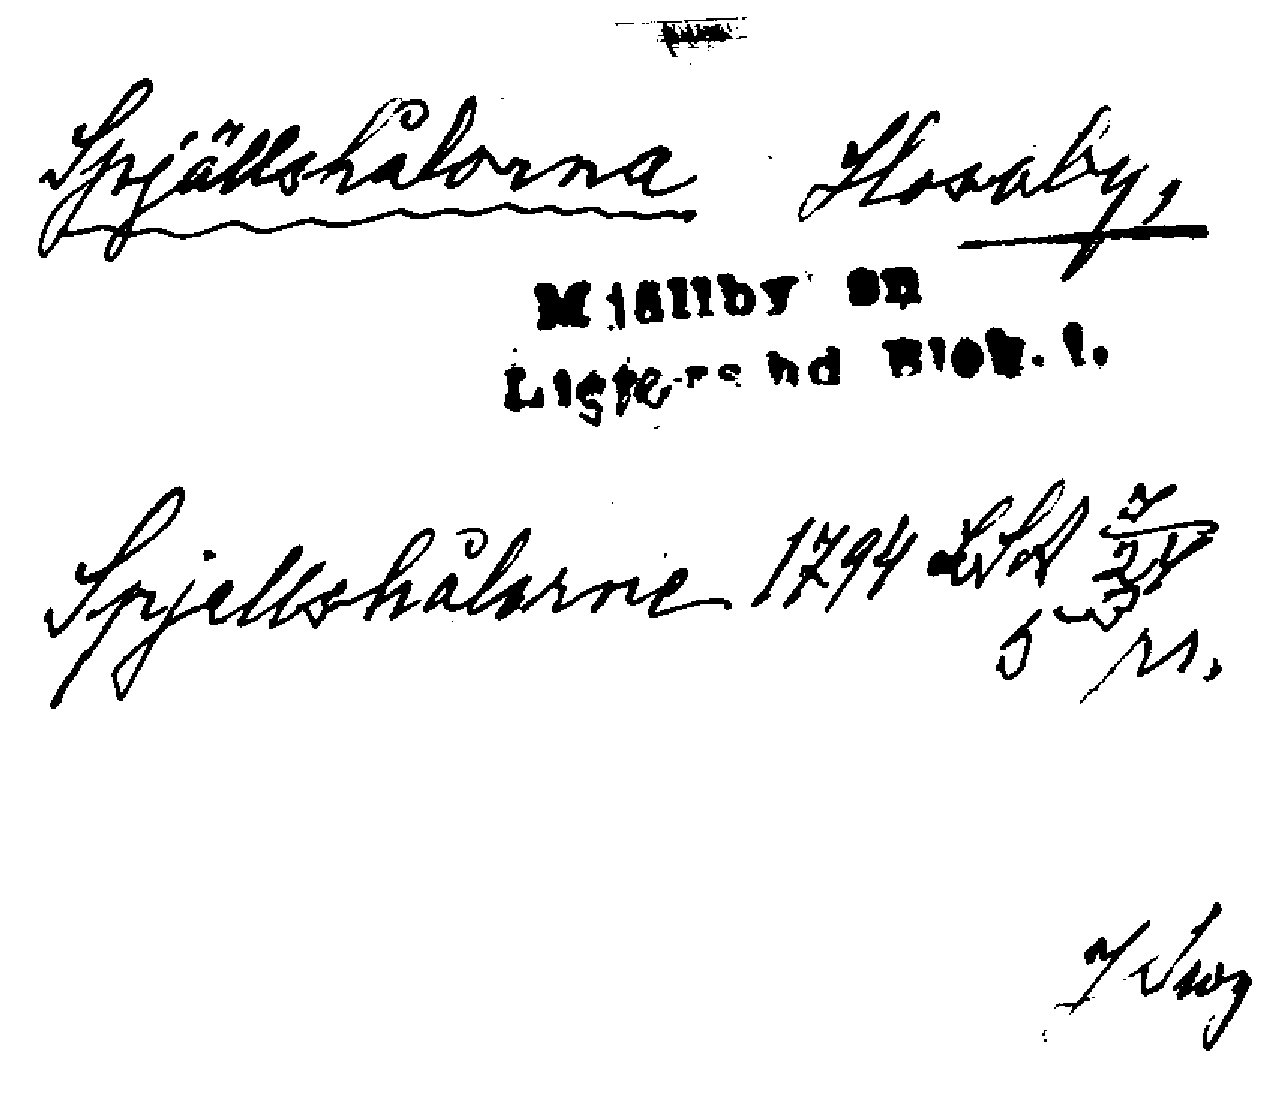 Spjällshålorna Hosaby,
Mjällby sn
Listers hd Blek. l.
Spjellshålorne 1794 LSA